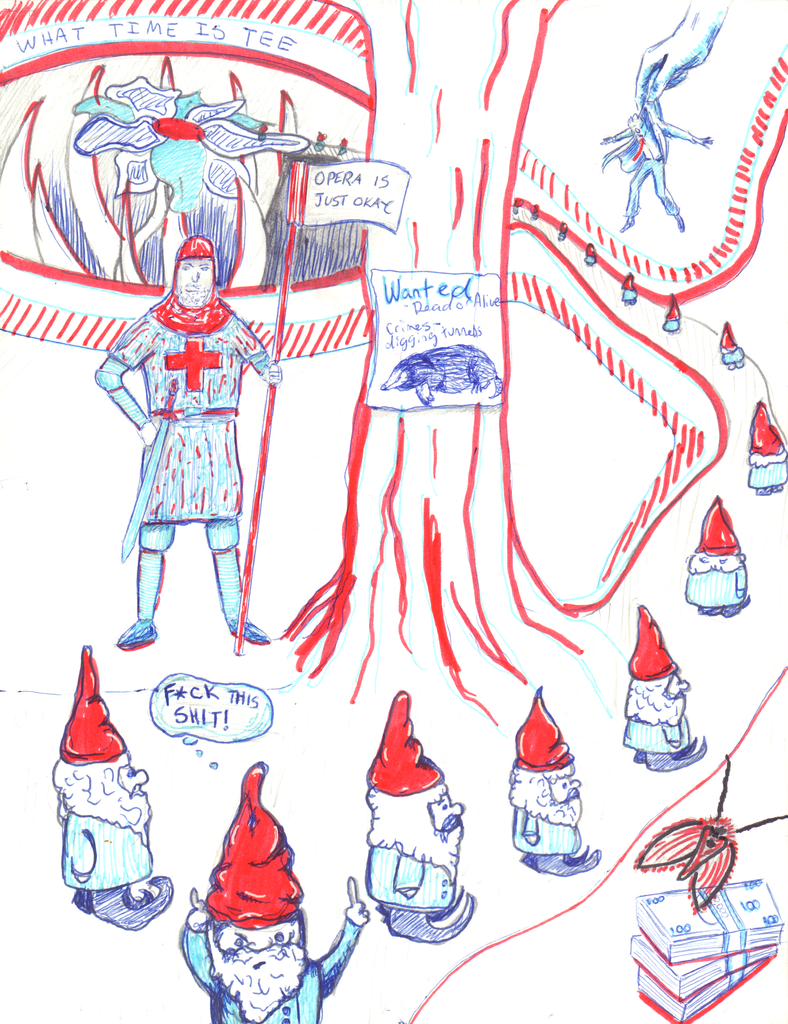 WHAT TIME IS TEE
OPERA IS
JUST OKAY
Wanted
-Dead or Alive
Crimes-
digging tunnels
F*CK THIS
SHIT!
100
100
100
100